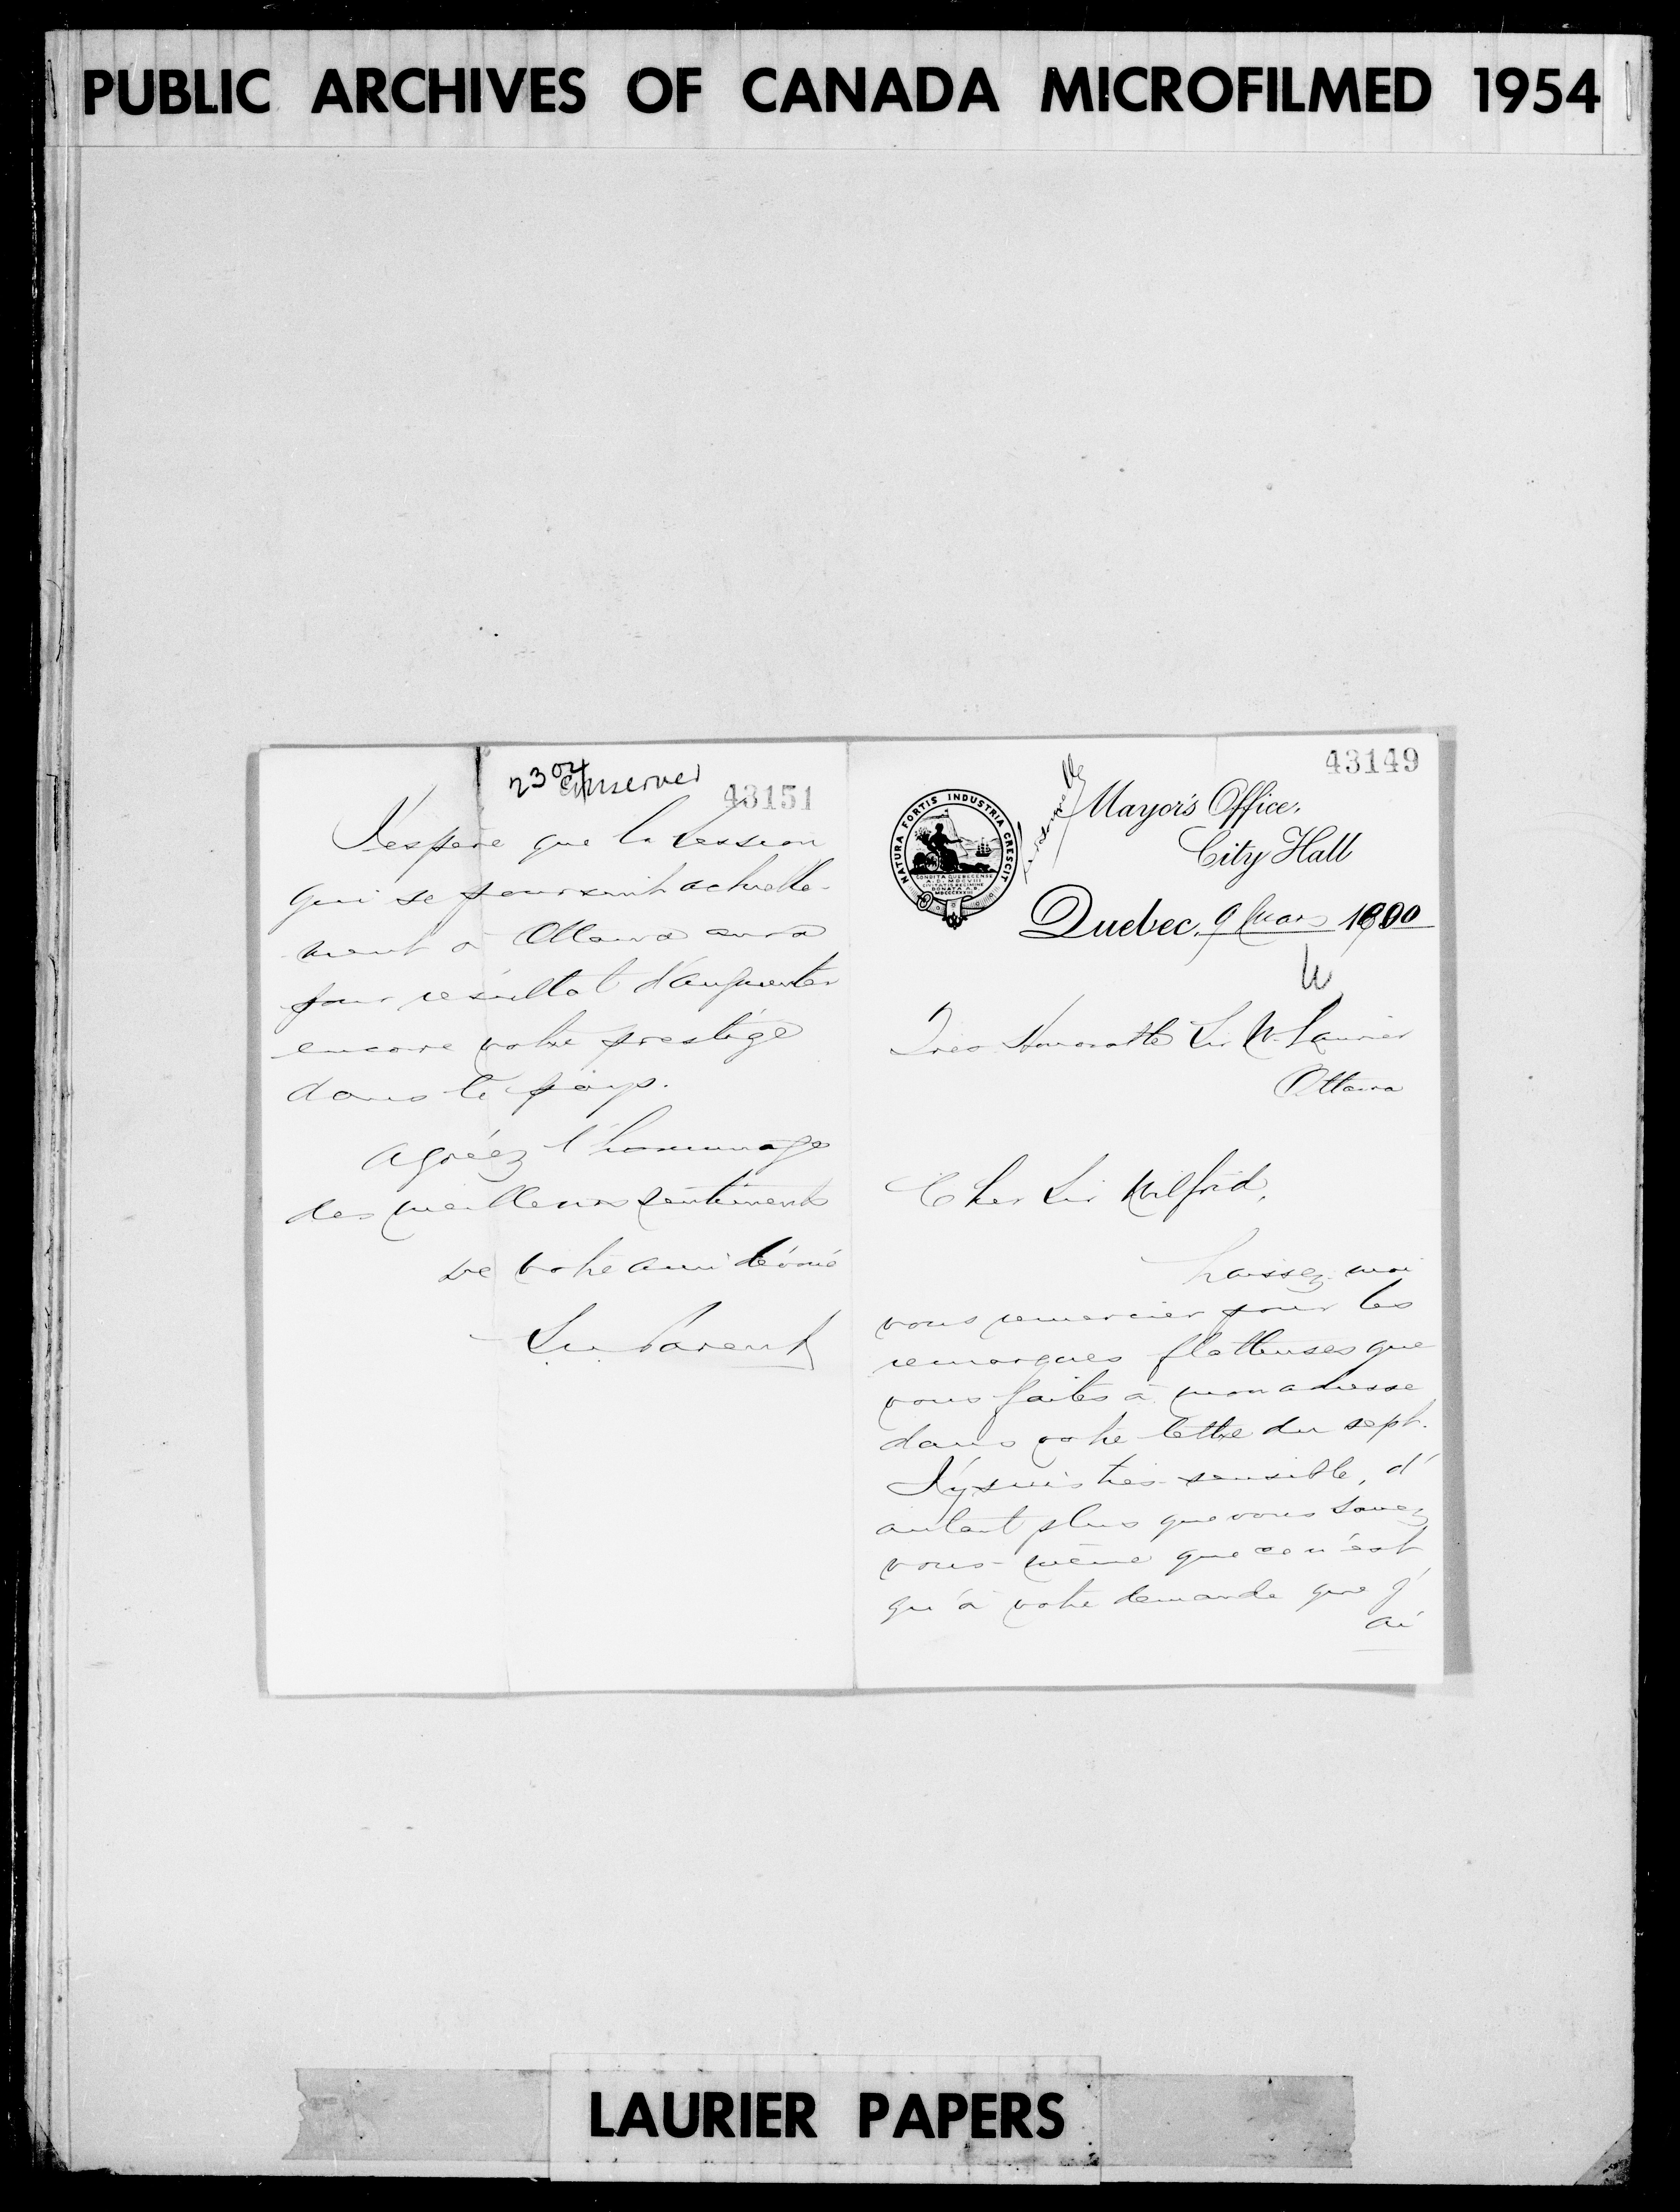 PUBLIC ARCHIVES OF CANADA MICROFILMED 1954
43149
Personnelle
Mayor's Office,
City Hall
NATURA FORTIS INDUSTRIA CRESCIT
CONDITA QUEBECENSE
A.D. MDCVIII
CIVITATIS REGIMINE
DONATA A.D.
MDCCCXXXIII
Quebec, 9 Mars 1900
Très Honorable Sir W. Laurier
Ottawa
Cher Sir Wilfrid,
Laissez moi
vous remercier pour les
remarques flatteuses que
vous faites à mon adresse
dans votre lettre du sept.
J'y suis très sensible, d'
autant plus que vous savez
vous-même que ce n'est
qu'à votre demande que j'
ai
conserver
43151
J'espère que la session
qui se poursuit actuelle-
ment à Ottawa aura
pour résultat d'augmenter
encore votre prestige
dans le pays.
Agréez l'hommage
des meilleurs sentiments
de votre ami dévoué
S.N. Parent
LAURIER PAPERS